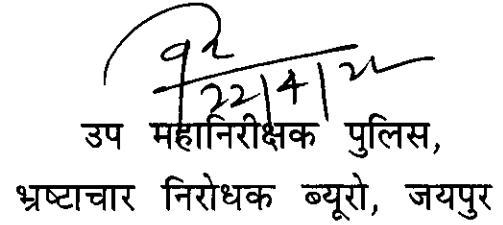 22|4|22
उप महानिरीक्षक पुलिस,
भ्रष्टाचार निरोधक ब्यूरो, जयपुर